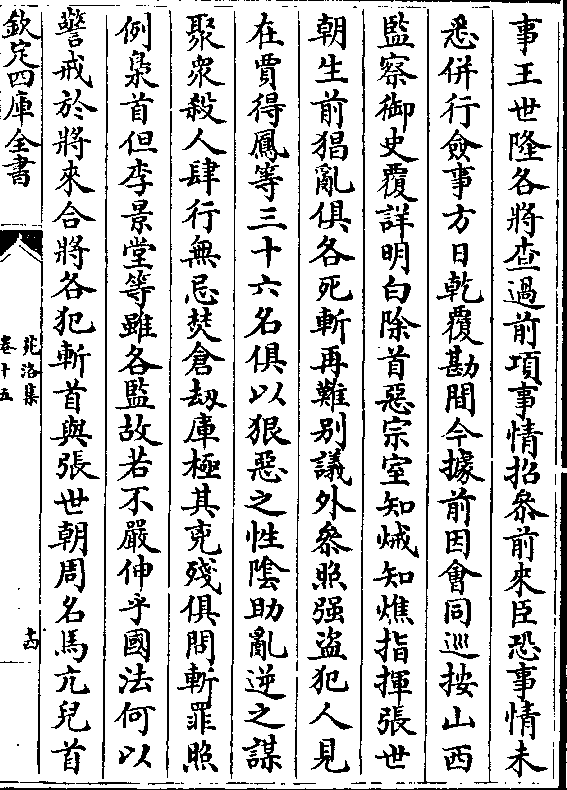 事王世隆各將查過前項事情招叅前來臣恐事情未
悉併行僉事方日乾覆勘間今據前因會同巡按山西
監察御史覆詳明白除首惡宗室知㶇知燋指揮張世
朝生前猖亂俱各死斬再難别議外叅照强盗犯人見
在賈得鳳等三十六名俱以狠惡之性隂助亂逆之謀
聚衆殺人肆行無忌焚倉刼庫極其兇殘俱問斬罪照
例梟首但李景堂等雖各監故若不嚴伸乎國法何以
警戒於將來合將各犯斬首與張世朝周名馬亢兒首
欽定四庫全書
苑洛集
卷十五
十四